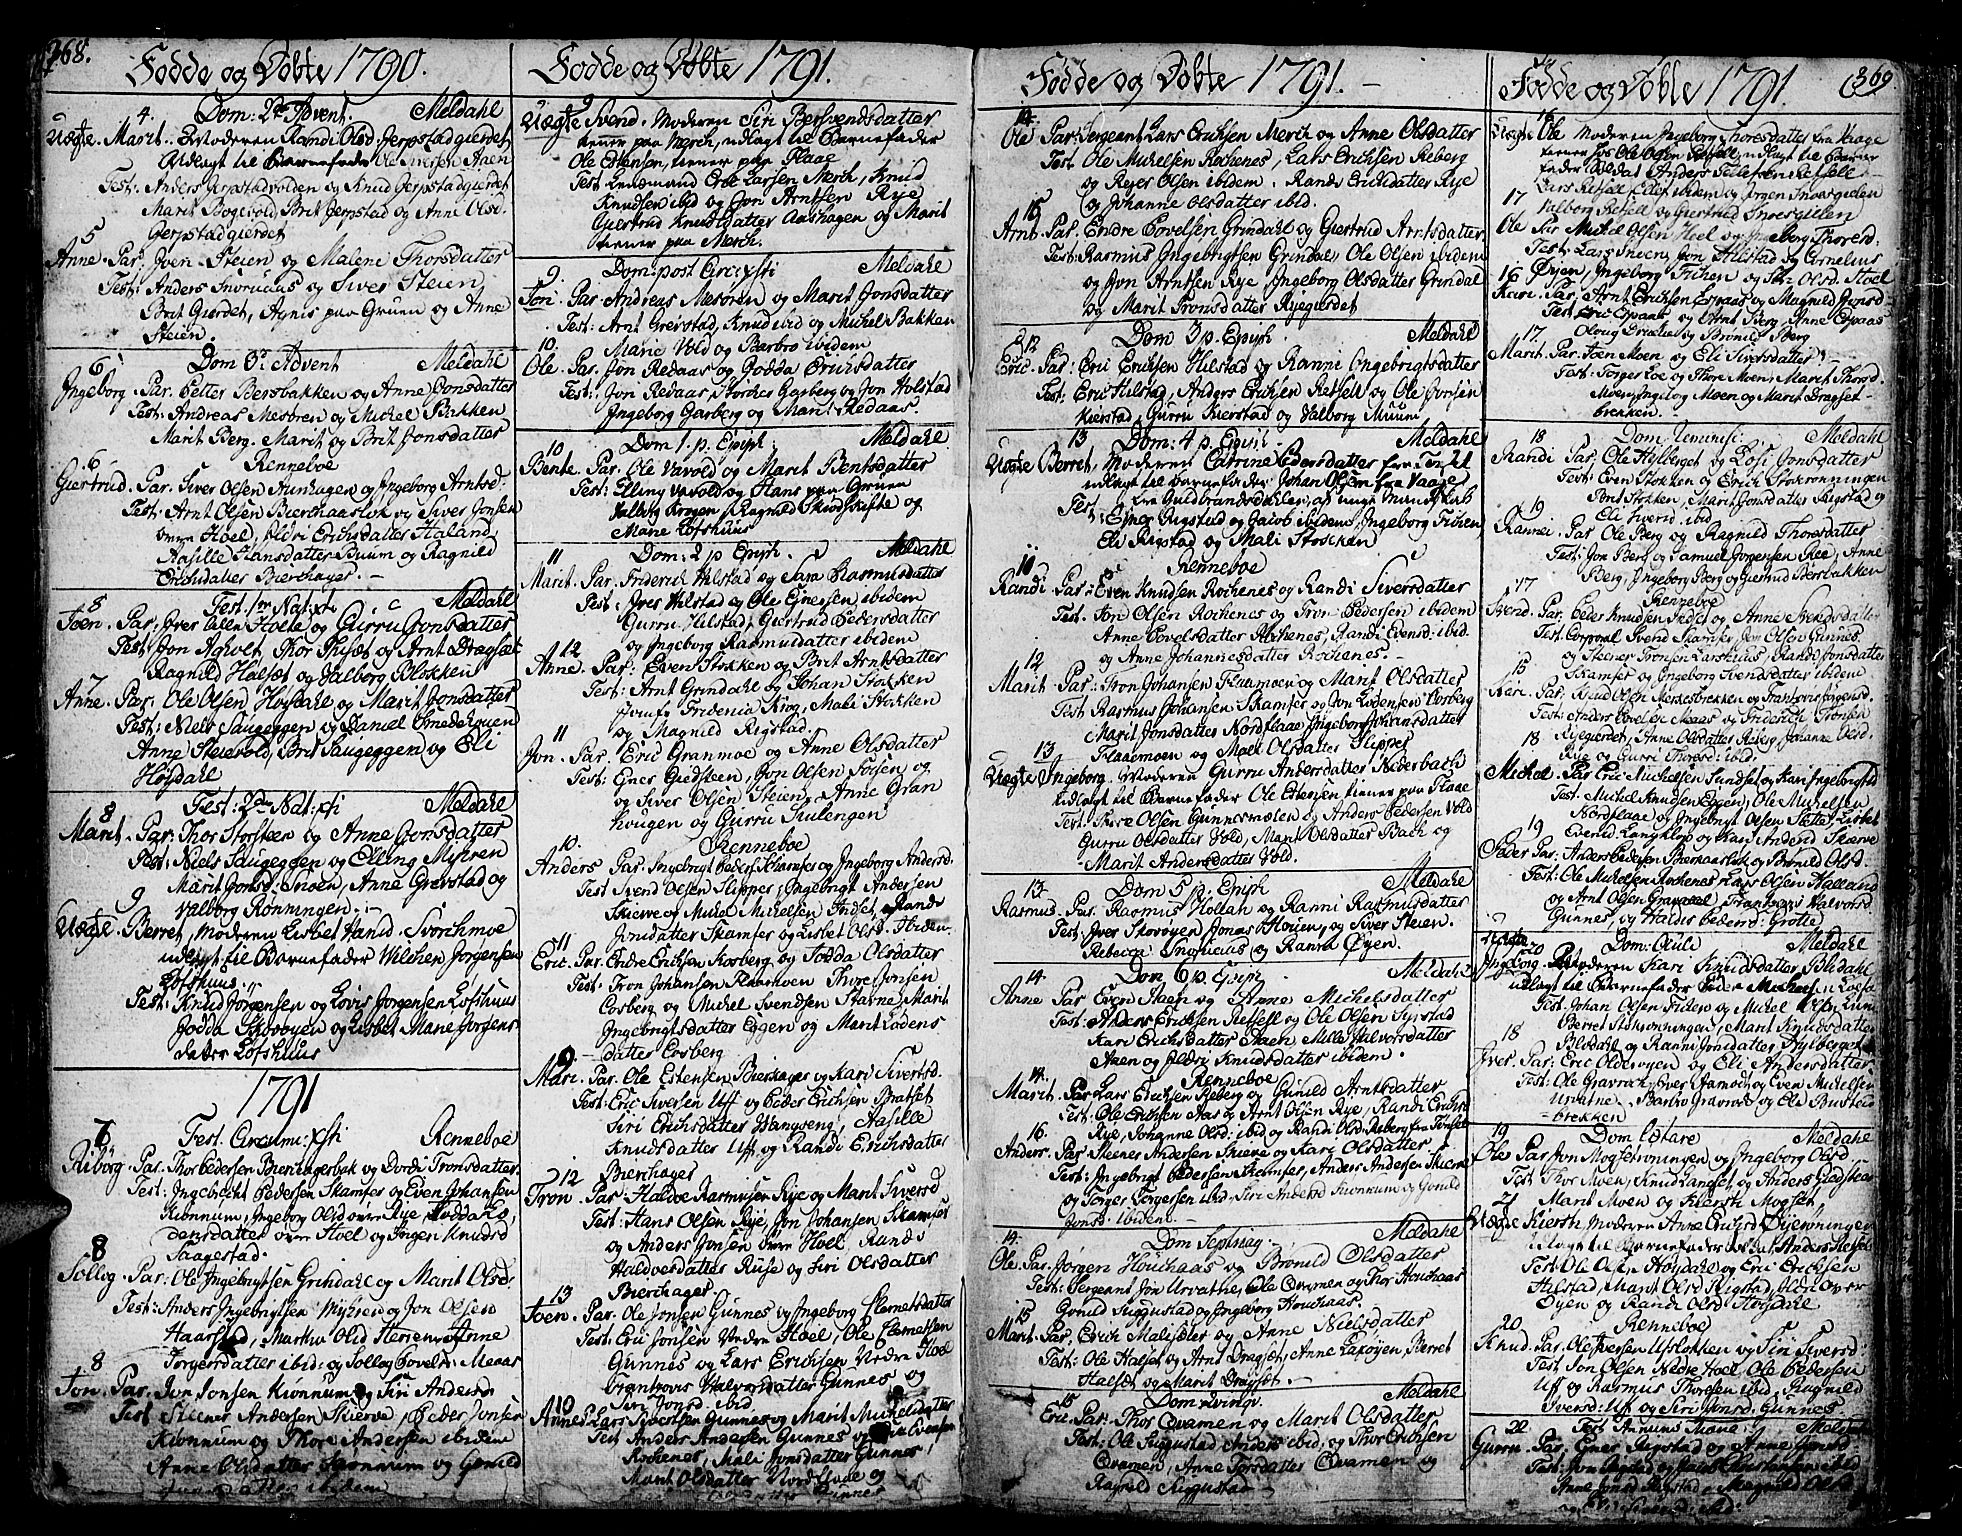 368.
Fødde og Døbte 1790.
4. Dom: 2den Advent. Meldahl
Uægte. Marit. Moderen Randi Olsd. Jerpstadgierdet
Udlagt til Barnefader Ole Iversen Aaen
Test: Anders Jerpstadvolden og Knud Jerpstadgierdet
Marit Bogevold, Brit Jerpstad og Anne Olsd.
Jerpstadgierdet
5
Anne. Par. Joen Steien og Malene Thorsdatter
Test: Anders Snorucus og Siver Steien
Brit Gierdet, Agnis paa Gruen og Anne
Steien.
6 Dom 3die Advent Meldahl
Ingeborg. Par. Petter Bersbakken og Anne Jonsdatter
Test: Andreas Mesøren og Michel Bakken
Marit Berg. Marit og Brit Jonsdatter
6. Renneboe
Giertrud. Par. Siver Olsen Aunhagen og Ingeborg Arntsd.
Test: Arnt Olsen Bierchaaslok og Siver Jonsen
Hoel, Ildri Erichsdatter Haland
Aasille Hansdatter Buum og Ragnild
Erichsdatter Bierchager.
8 Fest. 1ste Nat: xsti Meldahl
Joen. Par, Iver Holte og Gurru Jonsdatter
Test: Jon Agholt, Thor Husæt og Arnt Dragsæt
Ragnild Halsæt og Valborg Blokken
7
Anne. Par: Ole Olsen Høydahl og Marit Jonsdatter
Test: Niels Saugeggen og Daniel Smedehougen
Anne Steievold, Brit Saugeggen og Eli
Høydahl
8 Fest: 2den Nat: xsti Meldahl
Marit. Par: Thor Storsteen og Anne Jonsdatter
Test: Niels Saugeggen og Elling Misæren
Marit Jonsd: Snoen, Anne Grevstad og
Valborg Rønningen.
9
Uægte. Berret, Moderen Lisbet Hansd. Svorchmoe
udlagt til Barnefader Wilchen Jørgensen
Løfshuus
Test: Knud Jørgensen og Lovis Jørgensen Løfshuus
Jødda Skovøyen og Lisbet Marie Jørgens
datter Løfshuus
1791
7 Fest. Circumc: xsti Renneboe
Riborg. Par. Thor Pedersen Bierchagerbak og Dordi Tronsdatter
Test: Ingebrecht Pedersen Skamfer og Even Johansen
Kiønnum, Ingeborg Olsd over Rye, Lo-
densdatter over Hoel og Ingeri Knudsd
Saagestad.
8
Sollog. Par. Ole Ingebrigtsen Grindahl og Marit Olsd
Test: Anders Ingebrigtsen og Jon Olsen
Haarstad, Marhu Olsd Hersen, Anne
Torgersdatter ibid: og Solleg Povelsd: Meaas
8
Jon. Par. Jon Jonsen Kiønnum og Siri Andersd
Test Steener Andersen Skierve, Peder Jonsen
Kiønnum og Thore Andersen ibidem
Anne Olsdatter Kiønnum og Gonild
Jonsdatter ibidem
Fødde og Døbte 1791.
9
Uægte Svend. Moderen Siri Bersvendsdatter
tiener paa Merch, udlagt til Barnefader
Ole Estensen, tiener paa Flaae
Test Lensmand Eric Larsen Merch, Knud
Knudsen ibid og Jon Arntsen Rye
Giertrud Knudsdatter Aashagen og Marit
tiener paa Merch.
9. Dom: post Circ: xsti Meldahl
Tori. Par. Andreas Mesøren og Marit Jonsdatter
Test: Arnt Grevstad, Knud ibid og Michel Bakken
Marie Vold og Barbro ibidem
10.
Ole. Par. Jon Redaas og Jødda Erichsdatter
Test: Jon Redaas, Garberg og Jon Holstad
Ingeborg Garberg og Marit Redaas.
10 Dom 1. p. Epiph: Meldahl
Bente. Par. Ole Vavold og Marit Bentsdatter
Test: Elling Vavold og Hans paa Gruen
Valborg Krogen, Ragnild Skiordskifte og
Marie Løfshuus
11 Dom: 2 p Epiph. Meldahl
Marit. Par. Friderich Hilstad og Sara Rasmusdatter
Test: Iver Hilstad og Ole Ejnesen ibidem
Gurru Hilstad, Giertrud Pedersdatter
og Ingeborg Rasmusdatter ibidem
12
Anne. Par: Even Stokken og Brit Arntsdatter
Test: Arnt Grindahl og Johan Stokken
Jomfr Fridenia Krog, Mali Stokken
og Magnild Rigstad.
11
Jon. Par. Eric Granmoe og Anne Olsdatter
Test: Ener Giedsteen, Jon Olsen Forsen og
og Siver Olsen Steien, Anne Gran
hougen og Gurru Skulengen
10. Renneboe
Anders Par. Ingebrigt Pedersen Skamfer og Ingeborg Andersd.
Test Svend Olsen Slipper, Ingebrigt Andersen
Skierve og Michel Michelsen Indset, Rande
Jonsdatter Skamfer og Lisbet Olsd. ibidem.
11
Eric. Par: Endre Erichsen Kosberg og Jødda Olsdatter
Test: Tron Johansen Flaamoen og Thore Jonsen
Cosberg og Michel Svendsen Stavne, Marit
Ingebrigtsdatter Eggen og Marit Lodens
datter Cosberg
9
Mari. Par. Ole Estensen Bierchager og Kari Sivertsd.
Test: Eric Siversen Uff og Peder Erichsen Bratset
Siri Erichsdatter Wangseng, Aasille
Knudsdatter Uff og Randi Erichsdatter
Bierchager
12
Tron Par. Haldoe Rasmusen Rye og Marit Siversd
Test: Hans Olsen Rye, Jon Johansen Skamfer
og Anders Jonsen øvre Hoel, Rands
Haldoesdatter Ruse og Siri Olsdatter
Bierchager
13
Joen. Par. Ole Jonsen Gunnes og Ingeborg Clemetsdatter
Test: Eric Jonsen Nedre Hoel, Ole Clemetsen
Gunnes og Lars Erichsen Nedre Hoel
Frantzovis Halvorsdatter Gunnes og
Siri Jonsd ibid
10
Anne. Lars Sivertsen Gunnes og Marit Michelsdatter
Test Anders Andersen Gunnes og Evensen
Rochenes, Mali Jonsdatter Gunnes,
Marit Olsdatter Nord Flaae og
datter Gunnes
Fødde og Døbte 1791.
14.
Ole Par: Sergeant Lars Erichsen Merch og Anne Olsdatter
Test. Ole Michelsen Rochenes, Lars Erichsen Reberg
og Reyer Olsen ibidem. Randi Erichsdatter Rye
og Johanne Olsdatter ibid.
15
Arnt Par. Endre Povelsen Grindahl og Giertrud Arntsdatter
Test: Rasmus Ingebrigtsen Grindal, Ole Olsen ibidem
og Jon Arntsen Rye, Ingeborg Olsdatter Grindal
og Marit Tronsdatter Ryegierdet
12 Dom 3 p. Epiph Meldahl
Eric. Par: Eric Erichsen Hilstad og Ranni Ingebrigtsdatter
Test: Eric Hilstad, Anders Erichsen Refsell og Ole Jonsen
Kierstad, Gurru Kierstad og Valborg Muum
13 Dom: 4 p. Epiph. Meldahl
Uægte Berret, Moderen Catrine Pedersdatter fra Tønset
udlagt til Barnefader Johan Olsen fra Vaage
fra Guldbrandsdalen, af unge Mandskab
Test: Ejner Rigstad og Jacob ibidem, Ingeborg Fichen,
Eli Rigstad og Mali Stokken
10 Renneboe
Randi Par: Even Knudsen Rochenes og Randi Siversdatter
Test. Jon Olsen Rochenes og Tron Pedersen ibidem
Anne Povelsdatter Rochenes, Randi Evensd: ibid.
og Anne Johannesdatter Rochenes
12
Marit Par: Tron Johansen Flaamoen og Marit Olsdatter
Test Rasmus Johansen Skamfer og Jon Lodensen Cosberg
Marit Jonsdatter Nordflaae, Ingeborg Johansdatter
Flaaemoen og Mali Olsdatter Slipper
13
Uægte Ingeborg. Moderen Gurru Andersdatter Nederbach
udlagt til Barnefader Ole Estensen tiener paa Flaae
Test. Olsen Gunnesmælen og Anders Pedersen Vold
Gurru Olsdatter Vold, Marit Olsdatter Bach og
Marit Andersdatter Vold.
13. Dom 5 p. Epiph Meldahl
Rasmus. Par. Rasmus Hollan og Ranni Rasmusdatter
Test: Iver Skovøyen Jonas Houen, og Siver Steien.
Rebecca Snorucus og Ranni Øyen.
14. Dom 6 p. Epiph Meldahl
Anne Par Even Steen og Anne Michelsdatter
Test: Anders Erichsen Refsell og Ole Olsen Syrstad
Kari Erichsdatter Aaen, Mille Halvorsdatter
Aaen og Ildri Knudsdatter ibidem.
14. Renneboe
Marit Par Lars Erichsen Reberg og Gunild Arntsdatter
Test. Ole Erichsen Aas og Arnt Olsen Rye, Randi Erichsd
Rye, Johanne Olsd: ibid og Randi Olsd. Reberg fra Tønset
16.
Anders. Par Skeener Andersen Skierve og Kari Olsdatter
Test: Ingebrigt Pedersen Skamfer, Anders Andersen Skierve
og Torger Torgersen ibid. Siri Andersd Kiønnum og Gonild
Jonsd: ibidem.
14. Dom Septuag: Meldahl
Ole Par. Jørgen Houchaas og Brønild Olsdatter
Test: Sergeant Jon Urvathe, Ole Qvamen og Thor Houchaas
Gonild Siggustad og Ingeborg Houchaas.
15
Marit. Par, Erich Malisæter og Anne Nielsdatter
Test: Ole Halset og Arnt Dragsæt, Anne Laxøyen, Berret
Halsæt og Marit Dragsæt.
15 Dom: Qvinqv: Meldahl
Eric. Par: Thor Qvamen og Marit Olsdatter
Test: Ole Siggustad Anders ibid; og Thor Erichsen
Qvamen, Anne Torsdatter Qvamen og
Ragnild Siggustad
Fødde og Døbte 1791.
369
16
Uægte Ole Moderen Ingeborg Thoresdatter fra Vaage
tiener hos Ole Olsen Refsell, udlagt til Barne
fader Soldat Anders Pettersen Refsell
Lars Refsell, Ellef ibidem og Jørgen Snoesgielen
Valborg Refsell og Giertrud Snoesgielen
17
Ole Par Michel Olsen Hoel og Ingeborg Thorersd:
Test: Lars Snoen, Jon Hilstad og Cornelius
Øyen, Ingeborg Fichen og Siri Olsd. Hoel
16
Kari. Par. Arnt Erichsen Espaas og Magnild Jonsd
Test Eric Espaas og Arnt Berg, Anne Espaas
Oloug Drachen og Brønild Berg
17.
Marit. Par. Joen Moen og Eli Siversdatter
Test: Torger Loe og Thore Moen, Marit Thorsd.
Moen, Ingel og Moen og Marit Dragset-
brekken.
18 Dom. Reminisc: Meldahl
Randi Par: Ole Hylberget og Losi Jonsdatter
Test: Even Stokken og Erich Stokrønningen
Stokken, Marit Jonsdatter Rigstad og
Eli Hverid ibid.
19
Rannei Par Ole Berg og Ragnild Thoresdatter
Test: Jon Berg og Samuel Jørgensen Ree, Anne
Berg, Ingeborg Berg og Giertrud Bersbakken
17 Renneboe
Svend. Par: Peder Knudsen Indset og Anne Svendsdatter
Test. Corporal Svend Skamfer, Jon Olsen Gunnes,
og Skeener Tronsen Larshuus, Randi Jonsdatter
Skamfer og Ingeborg Svendsdatter ibidem
15
Kari. Par. Knud Olsen Merkesbrekken og Frantzovis Jørgensd
Test: Anders Povelsen Meaas og Friderich Tronsen
Ryegierdet, Anne Olsdatter Reberg, Johanne Olsd.
Rye og Gurri Thoresd: ibid:
18
Michel Par Eric Michelsen Sundset og Kari Ingebrigtsd
Test. Michel Knudsen Eggen, Ole Michelsen
Nordflaae og Ingebrigt Olsen Sætter, Lisbet
Evensd Langklop og Kari Andersd Skierve
19
Peder Par: Anders Pedersen Bierkaaslok og Brønild Olsd.
Test. Ole Michelsen Rochenes, Lars Olsen Halland
og Arnt Olsen Gravaael, Frantzovis Halvorsd
Gunnes, og Haldis Pedersd: Grotte
20 Dom: Oculi Meldahl
Uægte Ingeborg Moderen Kari Knudsdatter Bledahl
udlagt til Barnefader Peder Michelsen Loesa
Test. Johan Olsen Fichen og Michel
Berret Stokrønningen, Marit Knudsdatter
Blødahl og Ranni Jonsdatter Hylberget
18
Iver Par: Eric Oldevoyen og Eli Andersdatter
Test: Ole Gravrock, Iver Aamodt og Even Michelsen
Urvatne, Barbro Gravrock og Eli Bustad-
brekken
19. Dom Lætare Meldahl
Ole Par Jon Mogsetrønningen og Ingeborg Olsd
Test Thor Moen, Knud Langset og Anders Giedsteen
Marit Moen og Kiersti Mogset
21
Uægte Kiersti Moderen Anne Erichsd Øyerønningen
udlagt til Barnefader Soldat Anders Refsell
Test Ole Olsen Høydahl og Eric Erichsen
Hilstad, Marit Olsd Rigstad, over
Øyen og Randi Olsd Høydahl
20 Renneboe
Knud. Par. Ole Iversen Ufslokken og Siri Siversd:
Test Jon Olsen Nedre Hoel, Ole Pedersen
Uff og Rasmus Thoresen ibid. Ragnild
Siversd: Uf og Siri Jonsd. Gunnes
22 Fest Annunc: Mariæ Meldahl
Gurru Par, Ener Rigstad og Anne Jonsd
Test: Jon Rigstad og Jacob Christensen ibid
Anne Jonsd Rigstad, Magnild Olsd